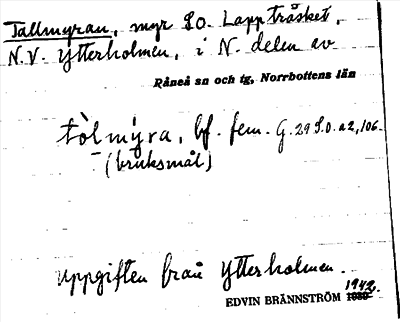 Tallmyran, myr S.O. Lappträsket,
N.V. Ytterholmen, i N. delen av
Råneå sn och tg, Norrbottens län
tòlmýra, bf. fem. G. 29 S.o. a2, 106.
(bruksmål)
Uppgiften från Ytterholmen.
1942.
EDVIN BRÄNNSTRÖM